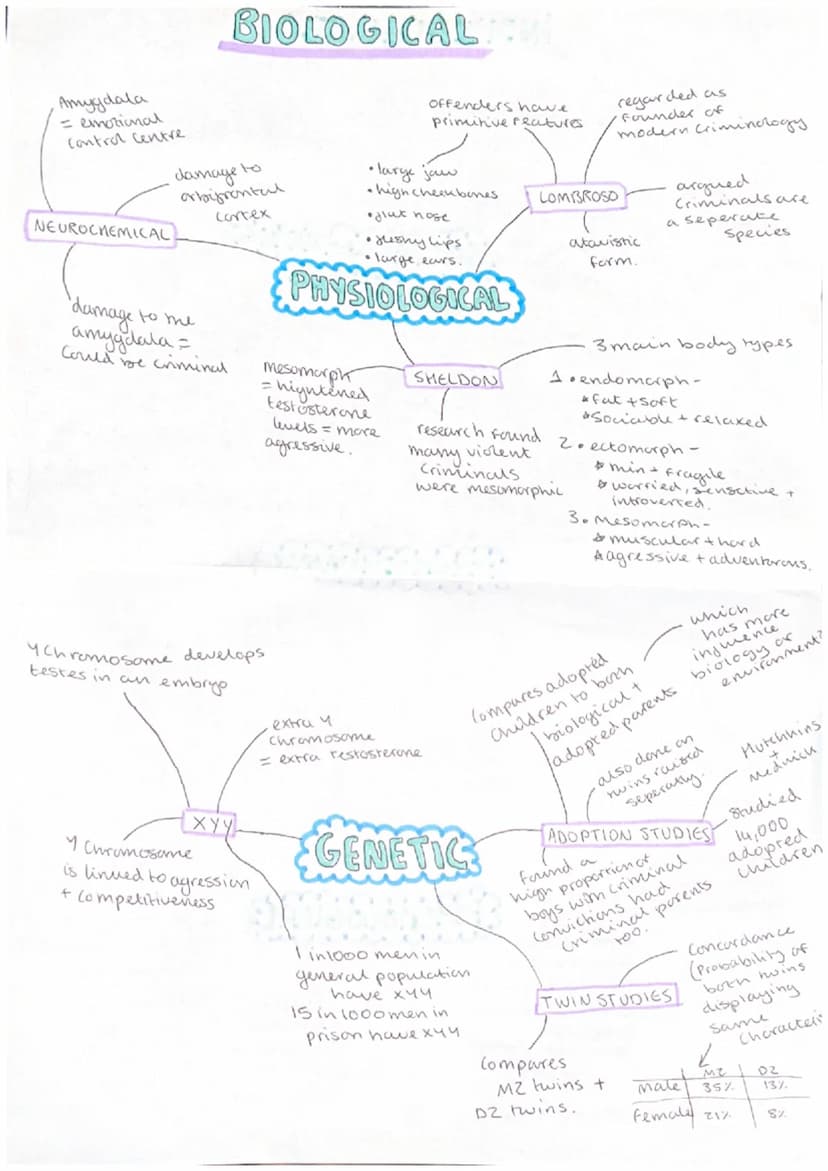 BIOLOGICAL
Amygdala
= emotional
control centre
damage to
orbifrontal
cortex
NEUROCHEMICAL
damage to the
amygdala =
could be criminal
offenders have
primitive features
• large jaw
• high cheekbones
• flat nose
• fleshy lips
• large ears.
regarded as
founder of
modern criminology
LOMBROSO
argued
criminals are
a seperate
species
atavistic
form.
PHYSIOLOGICAL
SHELDON
Mesomorph
= hightened
testosterone
levels = more
agressive.
research found
many violent
criminals
were mesomorphic
3 main body types
1. endomorph -
* fat + soft
* sociable + relaxed
2. ectomorph -
* thin + fragile
* worried, sensetive +
introverted.
3. Mesomorph -
* muscular + hard
* agressive + adventurous.
Y Chromosome develops
testes in an embryo
extra Y
chromosome
= extra testosterone
XYY
Y Chromosome
is linked to agression
+ competitiveness
1 in 1000 men in
general population
have XYY
15 in 1000 men in
prison have XYY
GENETIC
Compares adopted
children to both
biological +
adopted parents
which
has more
influence
biology or
environment?
also done on
twins raised
seperatly.
ADOPTION STUDIES
Hutchkins
+
Mednick
Studied
14,000
adopted
children
found a
high proportion of
boys with criminal
convictions had
criminal parents
too.
TWIN STUDIES
Concordance
(Probability of
both twins
displaying
same
Compares
MZ twins +
DZ twins.
MZ DZ
Male 35% 13%
Female 21% 8%